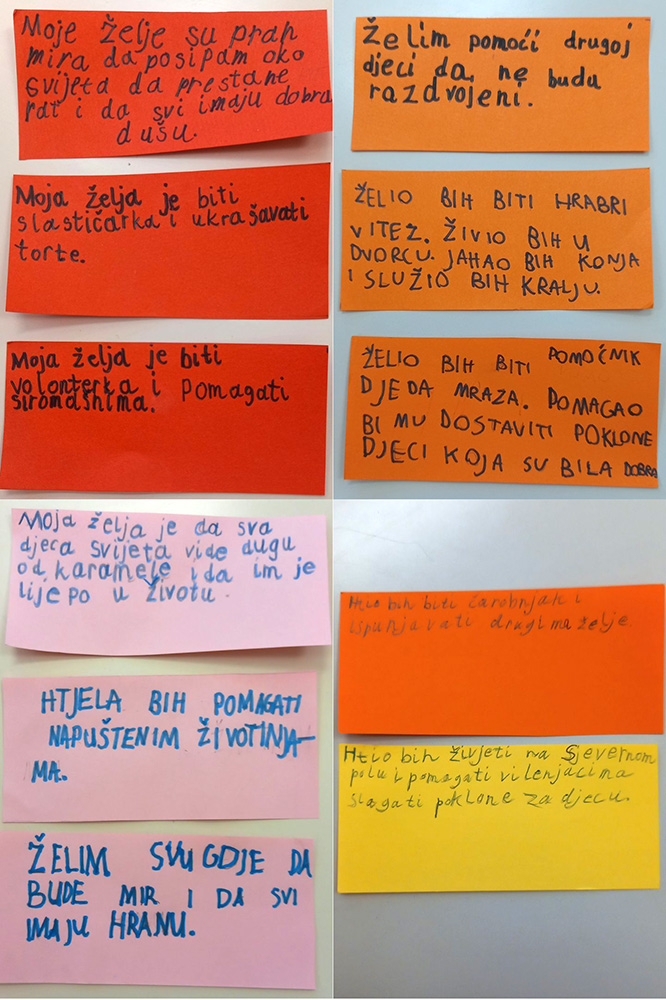 Moje želje su prah
mira da posipam oko
svijeta da prestane
rat i da svi imaju dobra
dušu.
Moja želja je biti
slastičarka i ukrašavati
torte.
Moja želja je biti
volonterka i pomagati
siromašnima.
Želim pomoći drugoj
djeci da ne budu
razdvojeni.
ŽELIO BIH BITI HRABRI
VITEZ. ŽIVIO BIH U
DVORCU. JAHAO BIH KONJA
I SLUŽIO BIH KRALJU.
ŽELIO BIH BITI POMOĆNIK
DJEDA MRAZA. POMAGAO
BI MU DOSTAVITI POKLONE
DJECI KOJA SU BILA DOBRA
Moja želja je da sva
djeca svijeta vide dugu
od karamele i da im je
lijepo u životu.
HTJELA BIH POMAGATI
NAPUŠTENIM ŽIVOTINJA-
MA.
ŽELIM SVUGDJE DA
BUDE MIR I DA SVI
IMAJU HRANU.
Htio bih biti čarobnjak i
ispunjavati drugima želje.
Htio bih živjeti na Sjevernom
polu i pomagati vilenjacima
slagati poklone za djecu.